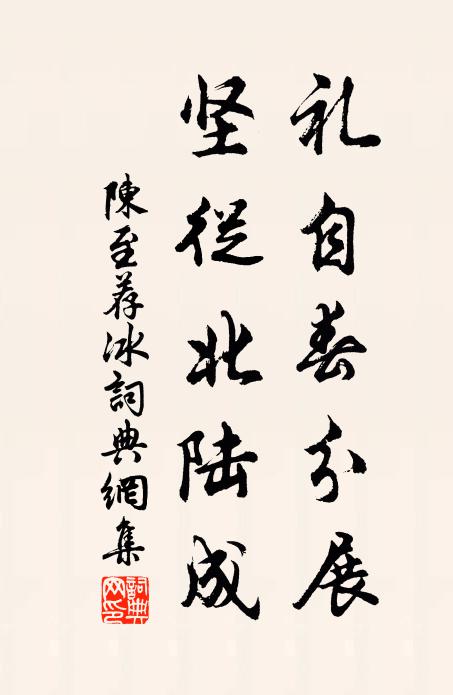 礼自春分展
坚從北陆成
陳至荐冰詞典網集
詞典網印